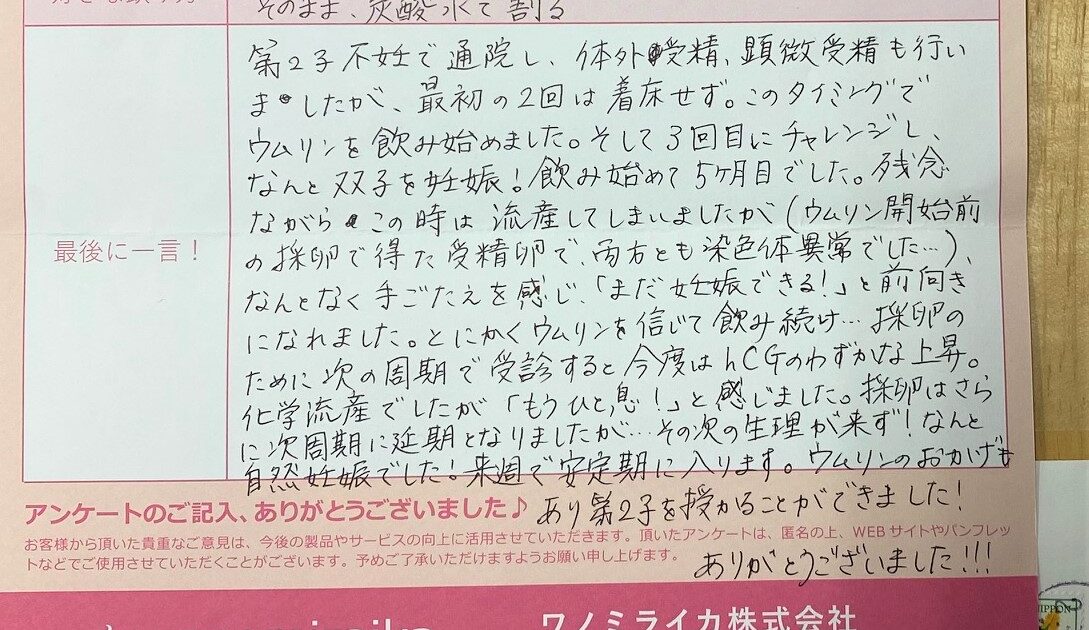 そのまま、炭酸水で割る
第2子不妊で通院し、体外受精、顕微受精も行い
ましたが、最初の2回は着床せず。このタイミングで
ウムリンを飲み始めました。そして3回目にチャレンジし、
なんと双子を妊娠！飲み始めて5ヶ月目でした。残念
ながらこの時は流産してしまいましたが（ウムリン開始前
の採卵で得た受精卵で、両方とも染色体異常でした…）、
最後に一言！
なんとなく手ごたえを感じ、「まだ妊娠できる！」と前向き
になれました。とにかくウムリンを信じて飲み続け…採卵の
ために次の周期で受診すると今度はhCGのわずかな上昇。
化学流産でしたが「もうひと息！」と感じました。採卵はさら
に次周期に延期となりましたが…その次の生理が来ず！なんと
自然妊娠でした！来週で安定期に入ります。ウムリンのおかげも
あり第2子を授かることができました！
ありがとうございました!!!
アンケートのご記入、ありがとうございました♪
お客様から頂いた貴重なご意見は、今後の製品やサービスの向上に活用させていただきます。頂いたアンケートは、匿名の上、WEBサイトやパンフレッ
トなどでご使用させていただくことがございます。予めご了承いただけますようお願い申し上げます。
ワノミライカ株式会社
NIPPON